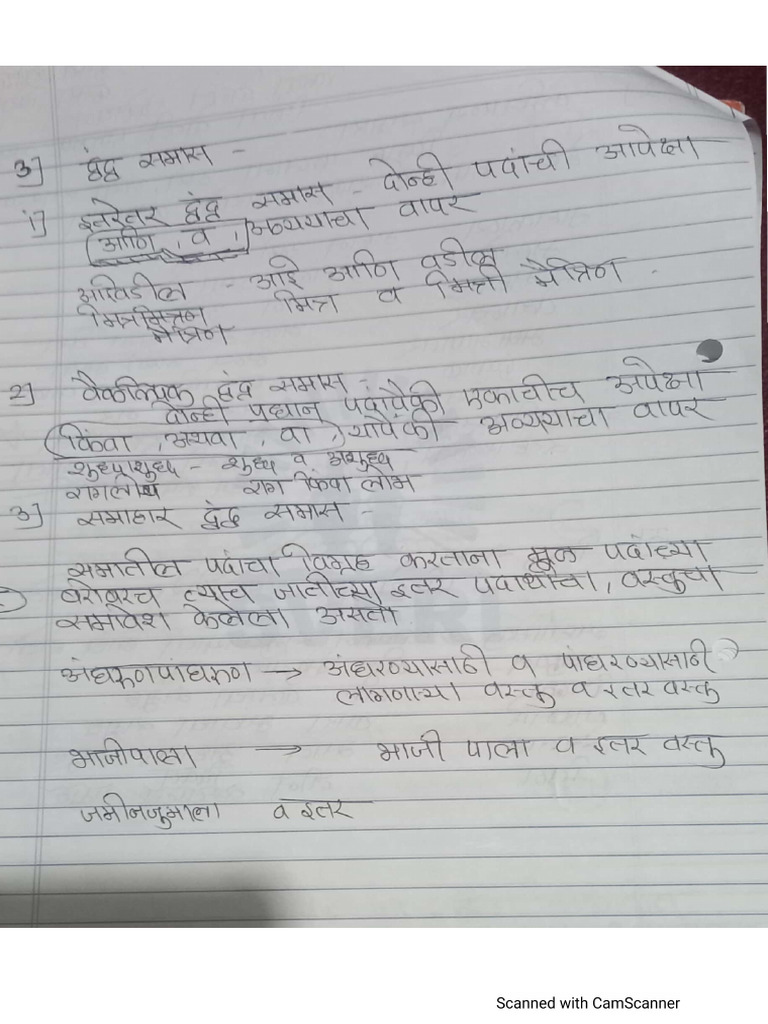 3] द्वंद्व समास -
i] इतरेतर द्वंद्व समास - दोन्ही पदांची आपेक्षा
आणि , व , अव्ययाचा वापर
आईवडील - आई आणि वडील
मित्र व मैत्रिन
मैत्रिन
2] वैकल्पिक द्वंद्व समास -
दोन्ही प्रधान पदांपैकी एकाचीच अपेक्षा
किंवा , अथवा , वा , यापैकी अव्ययाचा वापर
शुध्दाशुध्द - शुध्द व अशुध्द
रागलोभ राग किंवा लोभ
3] समाहार द्वंद्व समास -
समातील पदांचा विग्रह करताना मूळ पदांच्या
बरोबरच त्याच जातीच्या इतर पदार्थांचा , वस्तुचा
समावेश केलेला असतो
अंथरुणपांघरुण → अंथरण्यासाठी व पांघरण्यासाठी
लागणाऱ्या वस्तु व इतर वस्तु
भाजीपाला → भाजी पाला व इतर वस्तु
जमीनजुमाला व इतर
Scanned with CamScanner